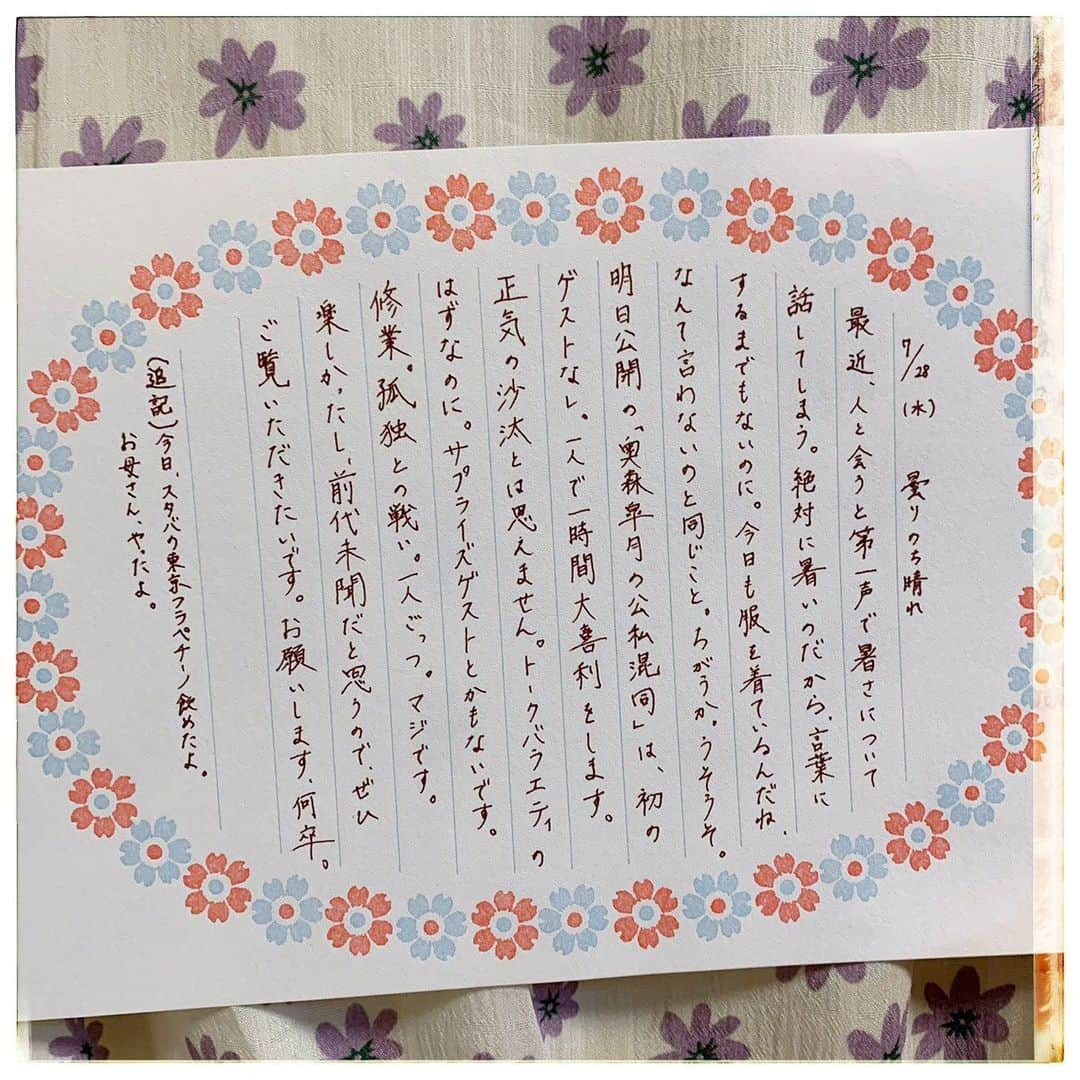 7/28(水) 曇りのち晴れ
最近、人と会うと第一声で暑さについて
話してしまう。絶対に暑いのだから、言葉に
するまでもないのに。今日も服を着ているんだね、
なんて言わないのと同じこと。ちがうか。うそうそ。
明日公開の「奥森皐月の公私混同」は、初の
ゲストなし。一人で一時間大喜利をします。
正気の沙汰とは思えません。トークバラエティの
はずなのに。サプライズゲストとかもないです。
修業。孤独との戦い。一人ごっつ。マジです。
楽しかったし、前代未聞だと思うので、ぜひ
ご覧いただきたいです。お願いします、何卒。
(追記)今日、スタバの東京フラペチーノ飲めたよ。
お母さん、やったよ。